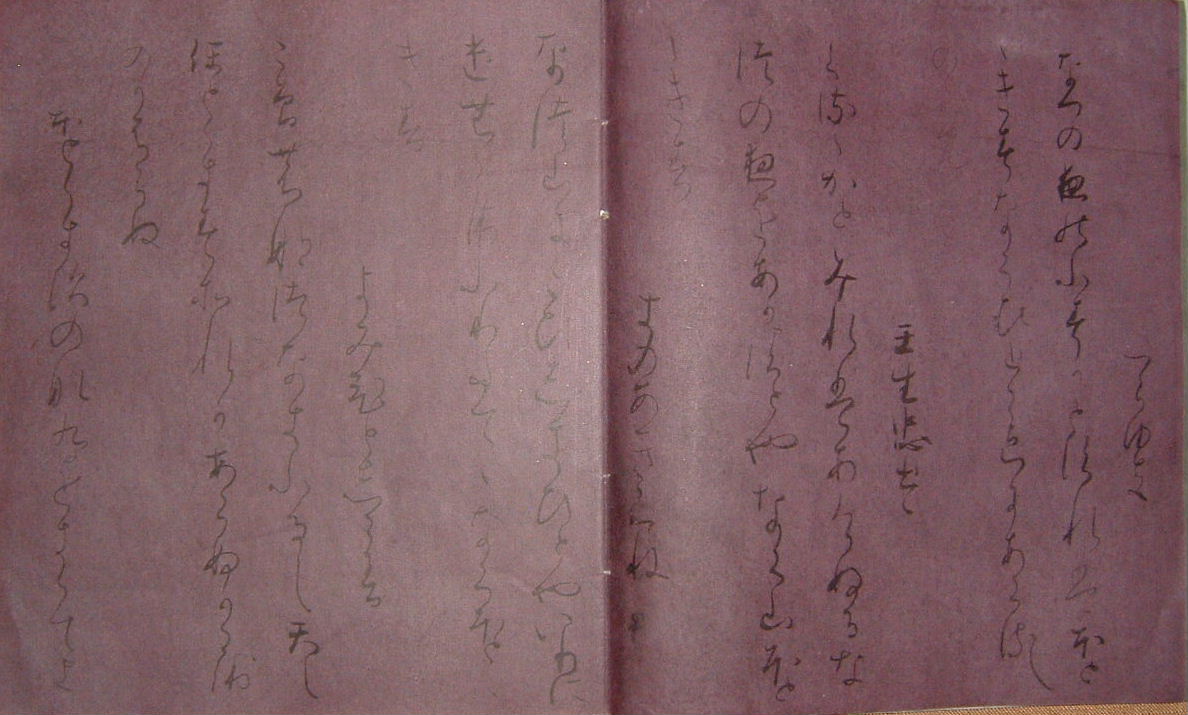 つらゆき
なつの夜のふすかとすれはほとゝ
きすなくひとこゑにあくるし
のゝめ
壬生忠岑
くるゝかとみれはあけぬるな
つの夜をあかすとやなく山ほとゝ
きす
きのあきみね
なつ山にこひしきひとやいりに
けむこゑふりたてゝなくほとゝ
きす
よみ人しらす
こそのなつなきふるしてし
ほとゝきすそれかあらぬかこゑ
のかはらぬ
ほとゝきすの